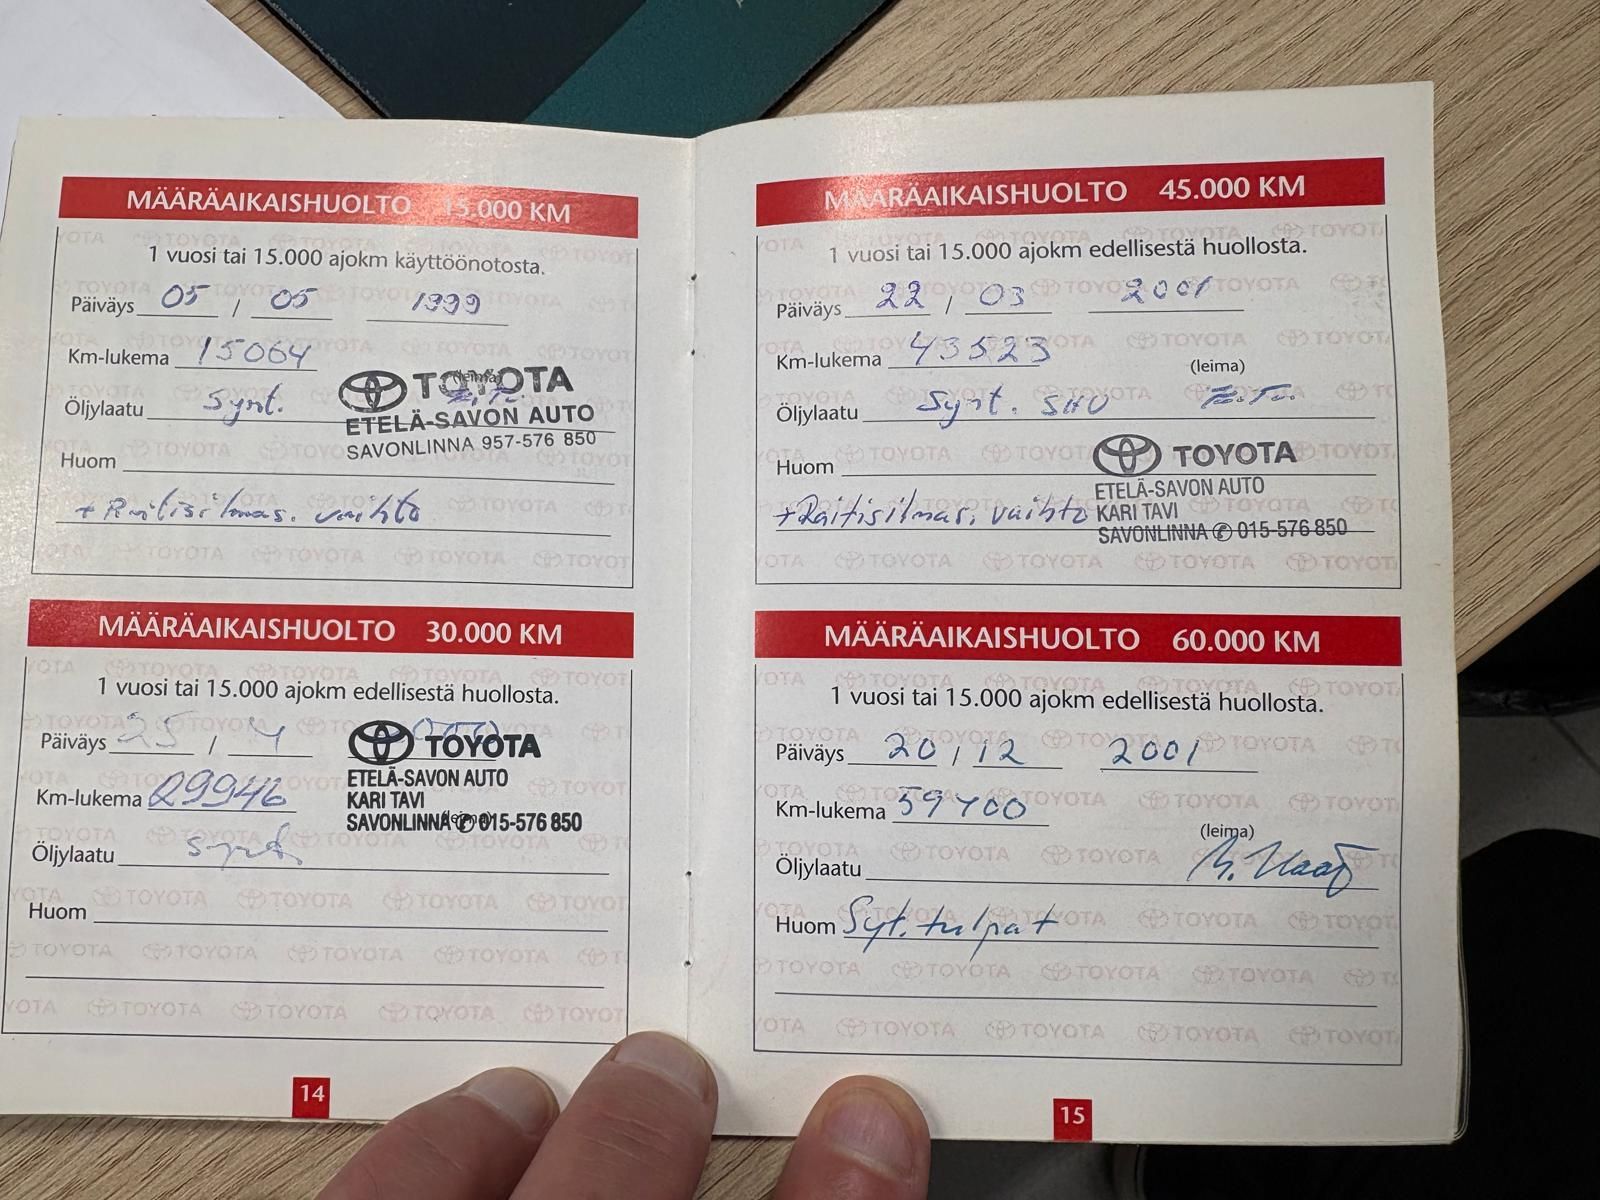 MÄÄRÄAIKAISHUOLTO 15.000 KM
1 vuosi tai 15.000 ajokm käyttöönotosta.
Päiväys 05 / 05 1999
Km-lukema 15064
(leima)
Öljylaatu Synt.
TOYOTA
ETELÄ-SAVON AUTO
SAVONLINNA 957-576 850
Huom
+ Raitisilmas. vaihto
MÄÄRÄAIKAISHUOLTO 30.000 KM
1 vuosi tai 15.000 ajokm edellisestä huollosta.
Päiväys 25 / 4
Km-lukema 29946
(leima)
Öljylaatu synt
TOYOTA
ETELÄ-SAVON AUTO
KARI TAVI
SAVONLINNA 015-576 850
Huom
14
MÄÄRÄAIKAISHUOLTO 45.000 KM
1 vuosi tai 15.000 ajokm edellisestä huollosta.
Päiväys 22 / 03 2001
Km-lukema 43523
(leima)
Öljylaatu Synt.
Huom
+ Raitisilmas. vaihto
TOYOTA
ETELÄ-SAVON AUTO
KARI TAVI
SAVONLINNA 015-576 850
MÄÄRÄAIKAISHUOLTO 60.000 KM
1 vuosi tai 15.000 ajokm edellisestä huollosta.
Päiväys 20 / 12 2001
Km-lukema
(leima)
Öljylaatu
Huom Syt. tulpat
15